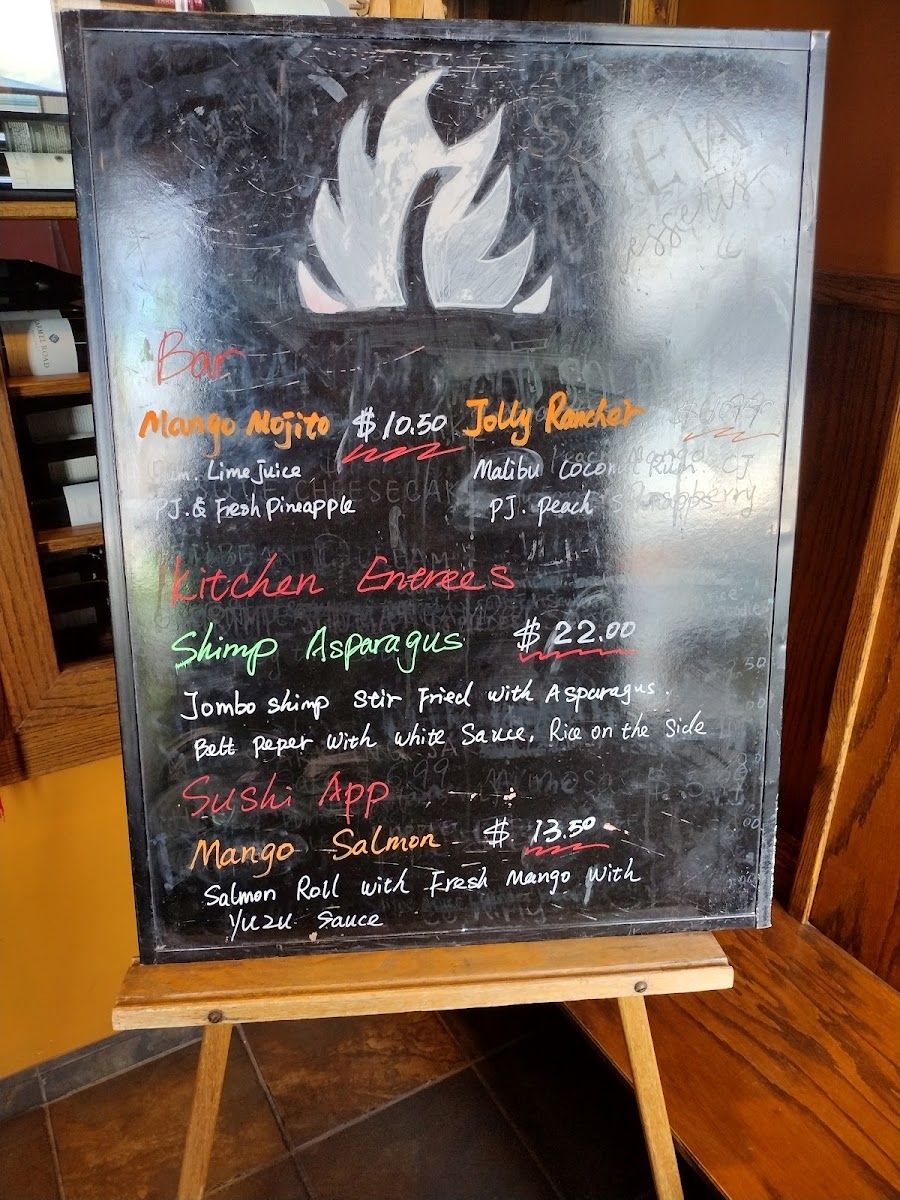 Bar
Mango Mojito $10.50 Jolly Rancher
Lime juice
PJ. & Fresh Pineapple
Malibu Coconut Rum. CJ
PJ. peach & Raspberry
Kitchen Entrees
Shimp Asparagus $22.00
Jombo shimp stir Fried with Asparagus.
Bell peper with white Sauce, Rice on the Side
Sushi App
Mango Salmon $13.50
Salmon Roll with Fresh Mango with
Yuzu Sauce